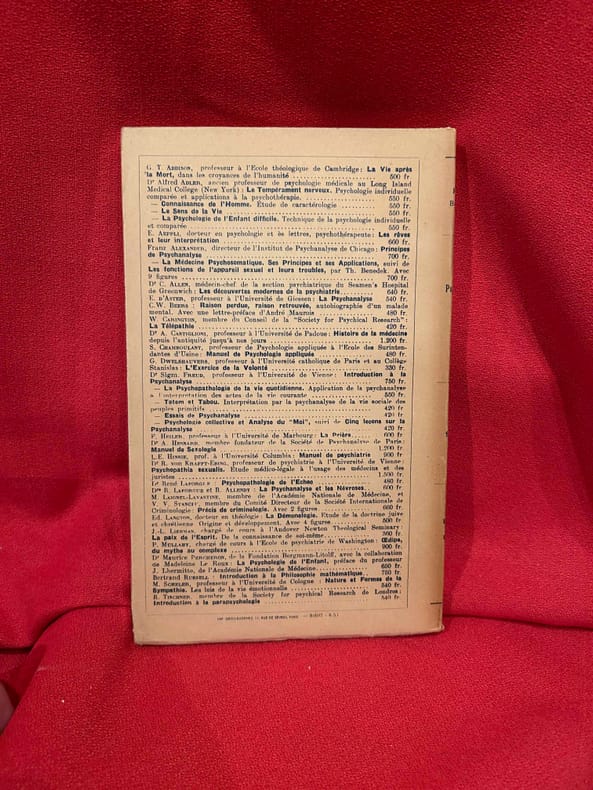 G. T. ADDISON, professeur à l'Ecole théologique de Cambridge: La Vie après
la Mort, dans les croyances de l'humanité .......... 500 fr.
Dr Alfred ADLER, ancien professeur de psychologie médicale au Long Island
Medical College (New York): Le Tempérament nerveux. Psychologie individuelle
comparée et applications à la psychothérapie. .......... 550 fr.
— Connaissance de l'Homme. Étude de caractérologie .......... 550 fr.
— Le Sens de la Vie .......... 550 fr.
— La Psychologie de l'Enfant difficile. Technique de la psychologie individuelle
et comparée .......... 550 fr.
E. AEPPLI, docteur en psychologie et ès lettres, psychothérapeute: Les rêves
et leur interprétation .......... 660 fr.
Franz ALEXANDER, directeur de l'Institut de Psychanalyse de Chicago: Principes
de Psychanalyse .......... 700 fr.
— La Médecine Psychosomatique. Ses Principes et ses Applications, suivi de
Les fonctions de l'appareil sexuel et leurs troubles, par Th. Benedek. Avec
9 figures .......... 700 fr.
Dr C. ALLEN, médecin-chef de la section psychiatrique du Seamen's Hospital
de Greenwich: Les découvertes modernes de la psychiatrie .......... 640 fr.
E. D'ASTER, professeur à l'Université de Giessen: La Psychanalyse 540 fr.
C.W. BEERS: Raison perdue, raison retrouvée, autobiographie d'un malade
mental. Avec une lettre-préface d'André Maurois .......... 480 fr.
W. CARINGTON, membre du Conseil de la "Society for Psychical Research":
La Télépathie .......... 420 fr.
Dr A. CASTIGLIONI, professeur à l'Université de Padoue: Histoire de la médecine
depuis l'antiquité jusqu'à nos jours .......... 1.200 fr.
S. CHAMBOULANT, professeur de Psychologie appliquée à l'Ecole des Surinten-
dantes d'Usine: Manuel de Psychologie appliquée .......... 480 fr.
G. DWELSHAUVERS, professeur à l'Université catholique de Paris et au Collège
Stanislas: L'Exercice de la Volonté .......... 330 fr.
Dr Sigm. FREUD, professeur à l'Université de Vienne: Introduction à la
Psychanalyse .......... 750 fr.
— La Psychopathologie de la vie quotidienne. Application de la psychanalyse
à l'interprétation des actes de la vie courante .......... 550 fr.
— Totem et Tabou. Interprétation par la psychanalyse de la vie sociale des
peuples primitifs .......... 420 fr
— Essais de Psychanalyse .......... 420 fr
— Psychologie collective et Analyse du "Moi", suivi de Cinq leçons sur la
Psychanalyse .......... 420 fr.
F. HEILER, professeur à l'Université de Marbourg: La Prière. .......... 600 fr
Dr A. HESNARD, membre fondateur de la Société de Psychanalyse de Paris:
Manuel de Sexologie .......... 1.200 fr.
L.E. HINSIE, prof. à l'Université Columbia: Manuel de psychiatrie 900 fr
Dr R. VON KRAFFT-EBING, professeur de psychiatrie à l'Université de Vienne:
Psychopathia sexualis. Étude médico-légale à l'usage des médecins et des
juristes .......... 1.500 fr.
Dr René LAFORGUE: Psychopathologie de l'Echec .......... 480 fr.
Drs R. LAFORGUE et R. ALLENDY: La Psychanalyse et les Névroses. 600 fr.
M. LAIGNEL-LAVASTINE, membre de l'Académie Nationale de Médecine, et
V. V. STANCIU, membre du Comité Directeur de la Société Internationale de
Criminologie: Précis de criminologie. Avec 2 figures .......... 660 fr.
Ed. LANGTON, docteur en théologie: La Démonologie. Étude de la doctrine juive
et chrétienne Origine et développement. Avec 4 figures .......... 500 fr.
J.-L. LIEBMAN, chargé de cours à l'Andover Newton Theological Seminary:
La paix de l'Esprit. De la connaissance de soi-même. .......... 360 fr.
P. MULLAHY, chargé de cours à l'Ecole de psychiatrie de Washington: Œdipe,
du mythe au complexe .......... 900 fr.
Dr Maurice PERCHERON, de la Fondation Bergmann-Litolff, avec la collaboration
de Madeleine Le Roux: La Psychologie de l'Enfant, préface du professeur
J. Lhermitte, de l'Académie Nationale de Médecine .......... 650 fr.
Bertrand RUSSELL: Introduction à la Philosophie mathématique. 750 fr.
M. SCHELER, professeur à l'Université de Cologne: Nature et Formes de la
Sympathie. Les lois de la vie émotionnelle .......... 540 fr.
R. TISCHNER, membre de la Society for psychical Research de Londres:
Introduction à la parapsychologie .......... 540 fr.